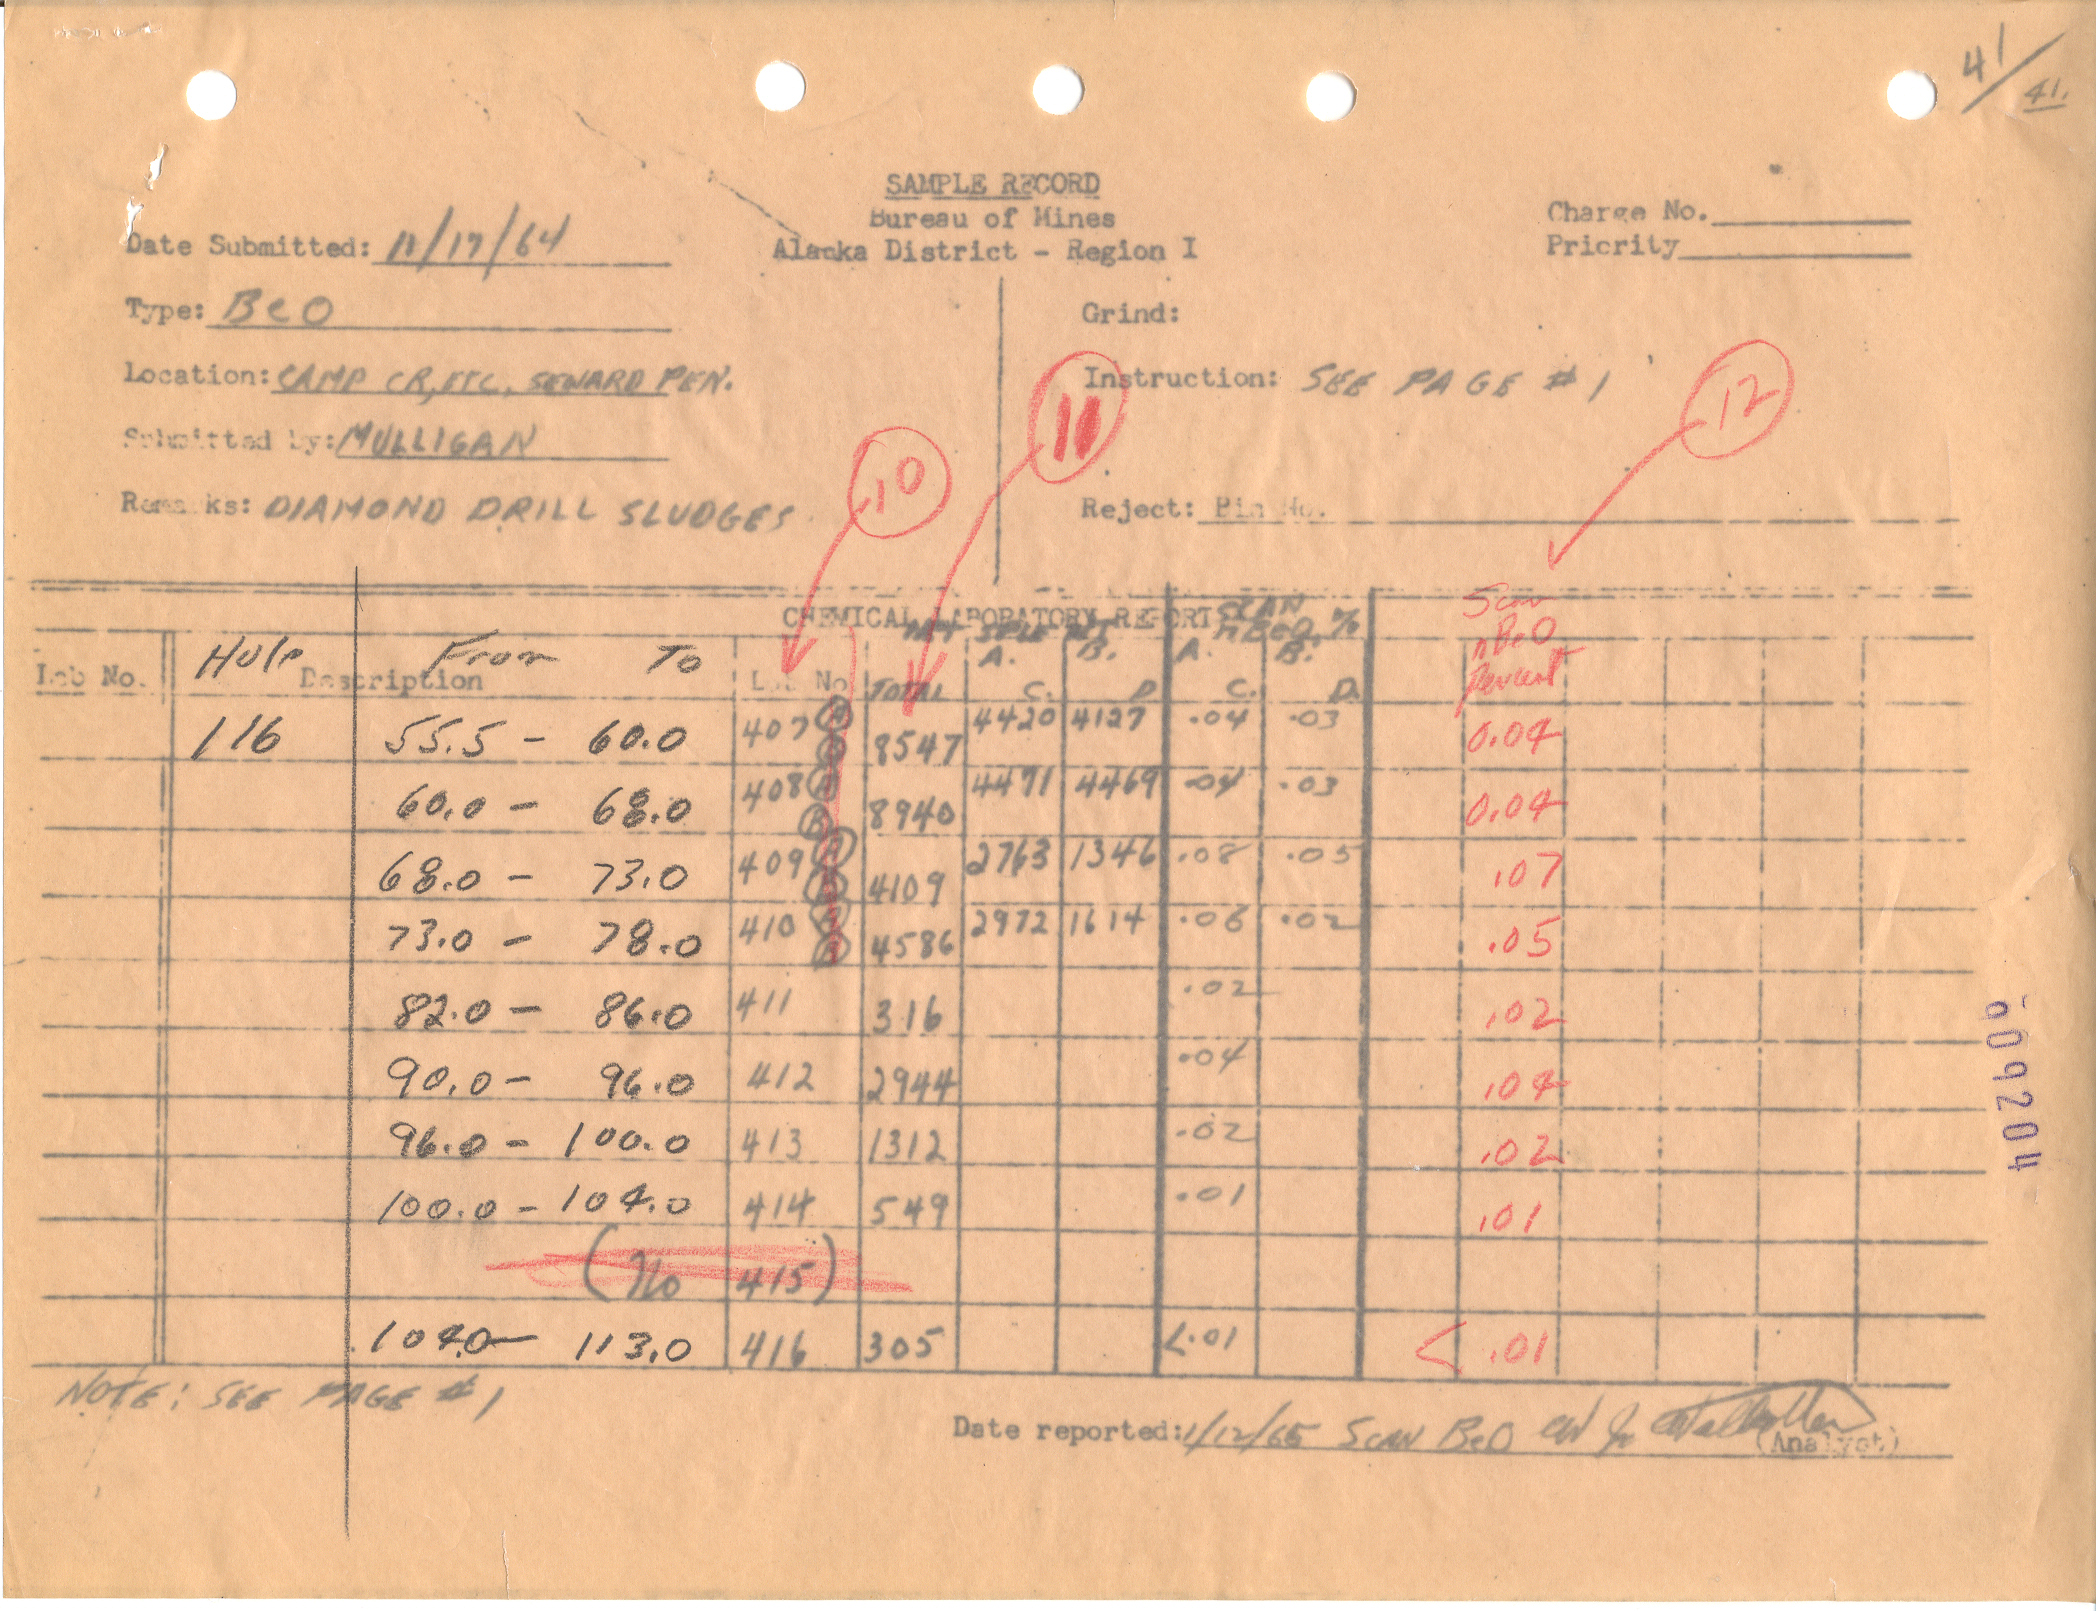 41/41.
SAMPLE RECORD
Bureau of Mines
Alaska District - Region I
Charge No.
Priority
Date Submitted: 11/17/64
Type: BeO
Grind:
Location: CAMP CR, ETC. SEWARD PEN.
Instruction: SEE PAGE # 1
Submitted by: MULLIGAN
Remarks: DIAMOND DRILL SLUDGES
Reject: Bin No.
10
11
12
CHEMICAL LABORATORY REPORT
NET SPLE WT. SCAN nBeO, %
Scan nBeO Percent
Lab No. Hole Description From To Lot No TOTAL A. B. C. D A. B. C. D.
116 55.5 - 60.0 407 A B 8547 4420 4127 .04 .03 0.04
60.0 - 68.0 408 A B 8940 4471 4469 .04 .03 0.04
68.0 - 73.0 409 A B 4109 2763 1346 .08 .05 .07
73.0 - 78.0 410 A B 4586 2972 1614 .06 .02 .05
82.0 - 86.0 411 316 .02 .02
90.0 - 96.0 412 2944 .04 .04
96.0 - 100.0 413 1312 .02 .02
100.0 - 104.0 414 549 .01 .01
(No 415)
104.0 - 113.0 416 305 <.01 < .01
NOTE: SEE PAGE # 1
Date reported: 1/12/65 SCAN BeO
(Analyst)
009204